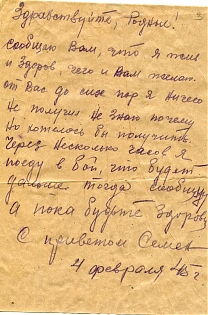 Здравствуйте, Родные!
сообщаю Вам, что я жив
и здоров, чего и Вам желаю.
от Вас до сих пор я ничего
не получил не знаю почему
но хотелось бы получить.
Через несколько часов я
поеду в бой, что будет
дальше тогда сообщу,
а пока будьте здоровы
С приветом Семен
4 февраля 45 г